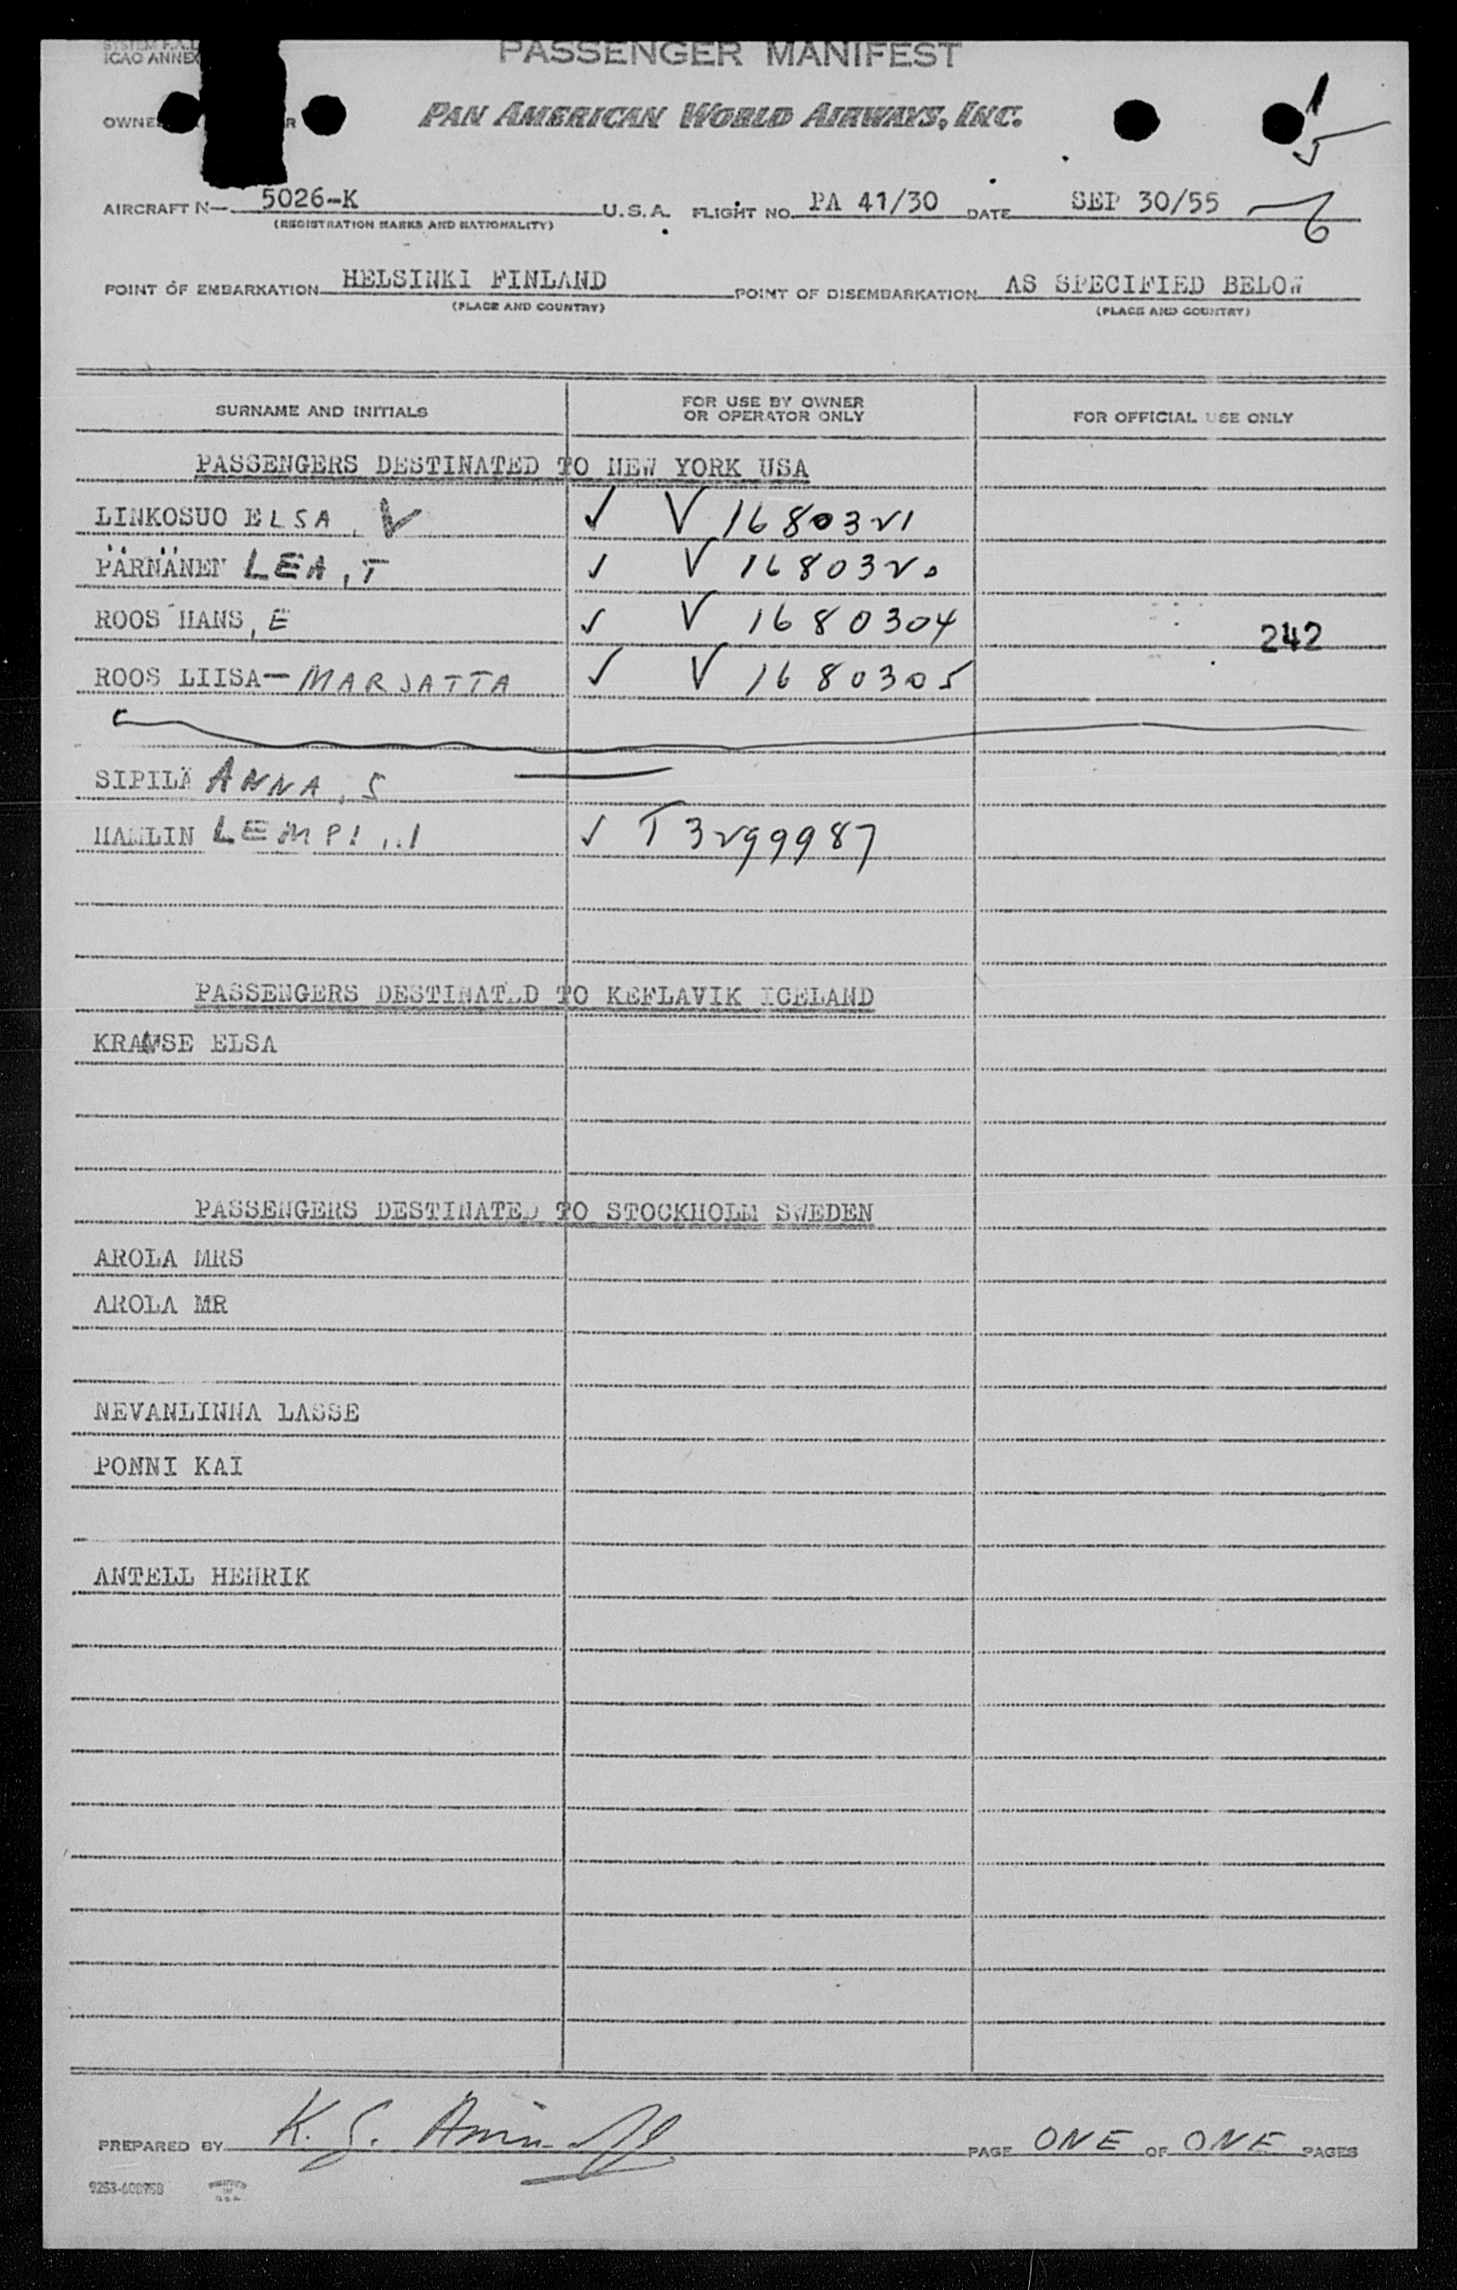 PASSENGER MANIFEST
ICAO ANNEX
PAN AMERICAN WORLD AIRWAYS, INC.
AIRCRAFT N— 5026-K U.S.A. FLIGHT NO. PA 41/30 DATE SEP 30/55
(REGISTRATION MARKS AND NATIONALITY)
POINT OF EMBARKATION HELSINKI FINLAND POINT OF DISEMBARKATION AS SPECIFIED BELOW
(PLACE AND COUNTRY) (PLACE AND COUNTRY)
SURNAME AND INITIALS FOR USE BY OWNER OR OPERATOR ONLY FOR OFFICIAL USE ONLY
PASSENGERS DESTINATED TO NEW YORK USA
LINKOSUO ELSA, V ✓ V 1680321
PÄRNÄNEN LEA, T ✓ V 1680320
ROOS HANS, E ✓ V 1680304 242
ROOS LIISA-MARJATTA ✓ V 1680305
SIPILÄ ANNA, S —
HAMLIN LEMPI, I ✓ T 3299987
PASSENGERS DESTINATED TO KEFLAVIK ICELAND
KRAUSE ELSA
PASSENGERS DESTINATED TO STOCKHOLM SWEDEN
AROLA MRS
AROLA MR
NEVANLINNA LASSE
PONNI KAI
ANTELL HENRIK
PREPARED BY K. G. PAGE ONE OF ONE PAGES